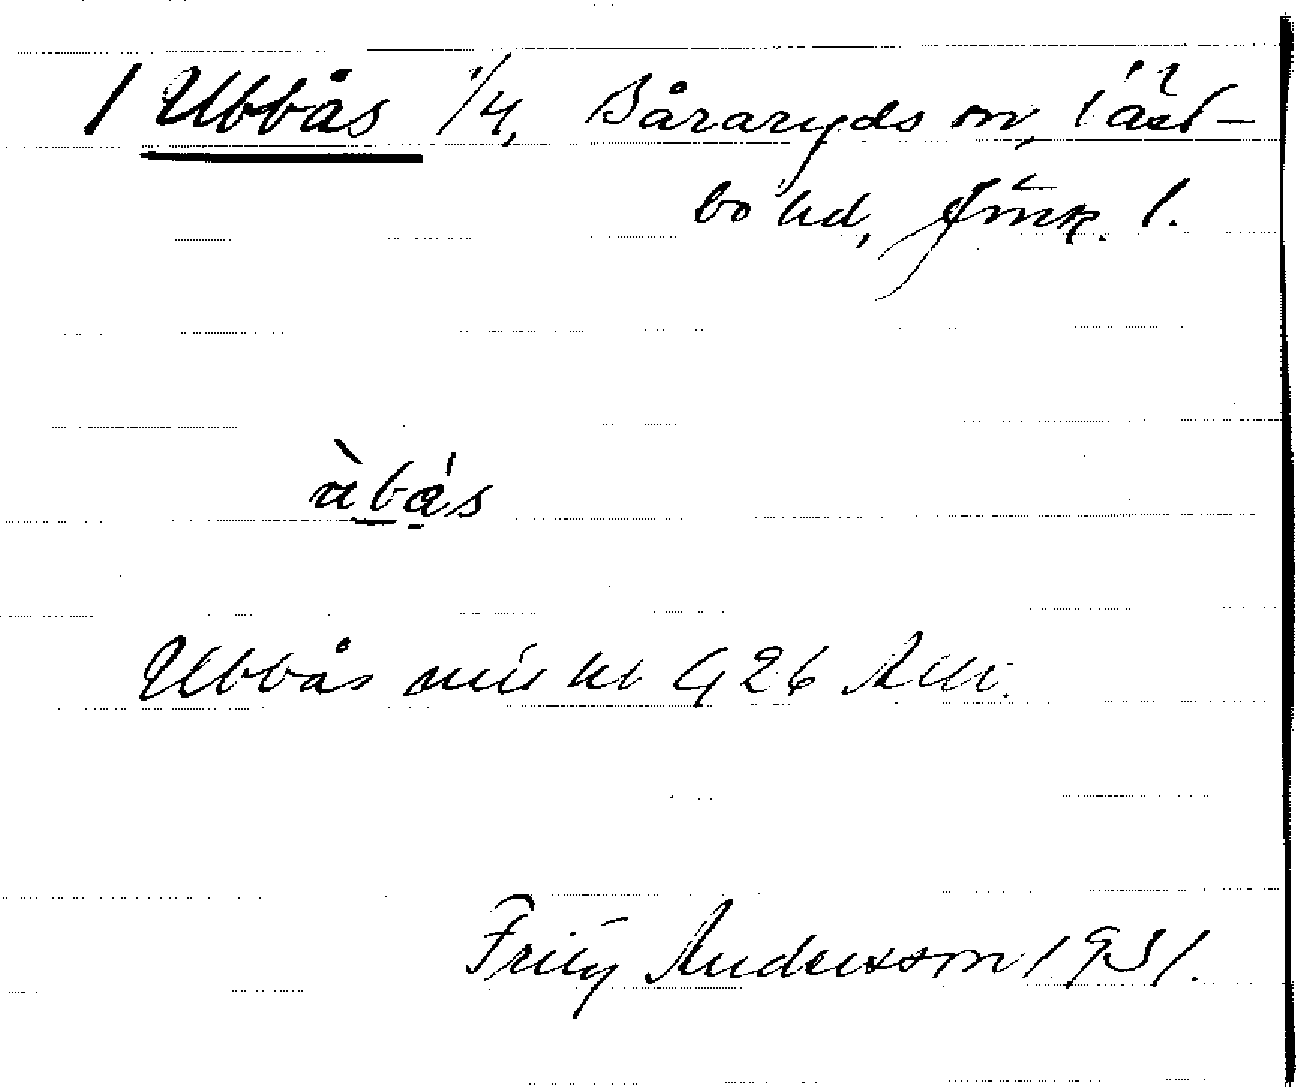 1 Ubbås 1/4, Båraryds sn, Väst-
bo hd, Jönk. l.
àbás
Ubbås 426
Fritz Andersson 1931.